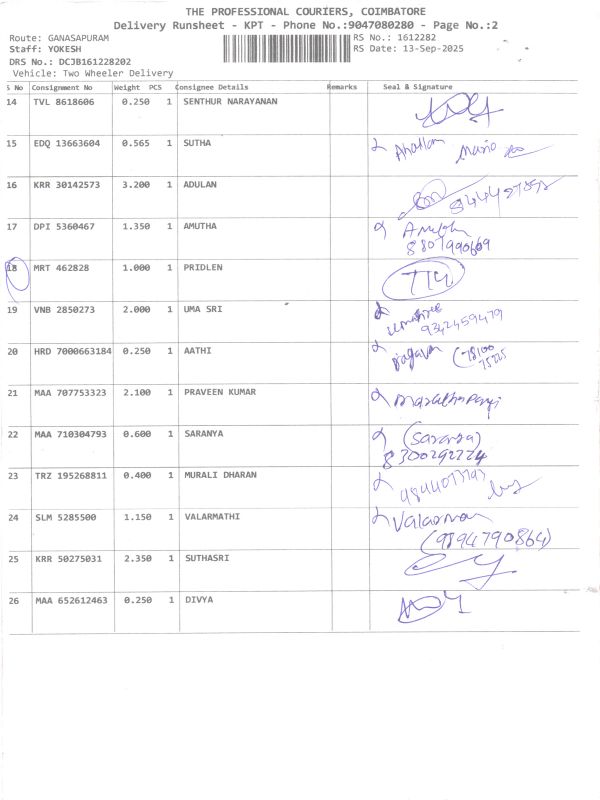 THE PROFESSIONAL COURIERS, COIMBATORE
Delivery Runsheet - KPT - Phone No.:9047080280 - Page No.:2
Route: GANASAPURAM RS No.: 1612282
Staff: YOKESH RS Date: 13-Sep-2025
DRS No.: DCJB161228202
Vehicle: Two Wheeler Delivery
S No Consignment No Weight PCS Consignee Details Remarks Seal & Signature
14 TVL 8618606 0.250 1 SENTHUR NARAYANAN
15 EDQ 13663604 0.565 1 SUTHA
16 KRR 30142573 3.200 1 ADULAN
17 DPI 5360467 1.350 1 AMUTHA
18 MRT 462828 1.000 1 PRIDLEN
19 VNB 2850273 2.000 1 UMA SRI
9342459479
20 HRD 7000663184 0.250 1 AATHI
21 MAA 707753323 2.100 1 PRAVEEN KUMAR
22 MAA 710304793 0.600 1 SARANYA (Saranya)
8300292774
23 TRZ 195268811 0.400 1 MURALI DHARAN
24 SLM 5285500 1.150 1 VALARMATHI
(9894790864)
25 KRR 50275031 2.350 1 SUTHASRI
26 MAA 652612463 0.250 1 DIVYA